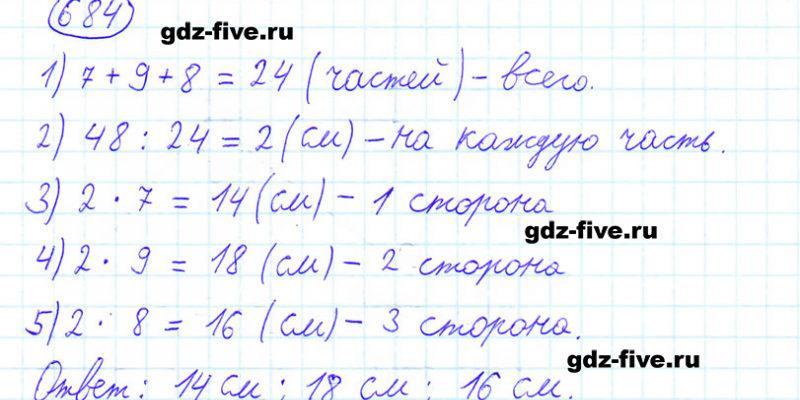 684
gdz-five.ru
1) 7 + 9 + 8 = 24 (частей) – всего.
2) 48 : 24 = 2 (см) – на каждую часть.
3) 2 · 7 = 14 (см) – 1 сторона
gdz-five.ru
4) 2 · 9 = 18 (см) – 2 сторона
5) 2 · 8 = 16 (см) – 3 сторона.
gdz-five.ru
Ответ: 14 см ; 18 см ; 16 см.